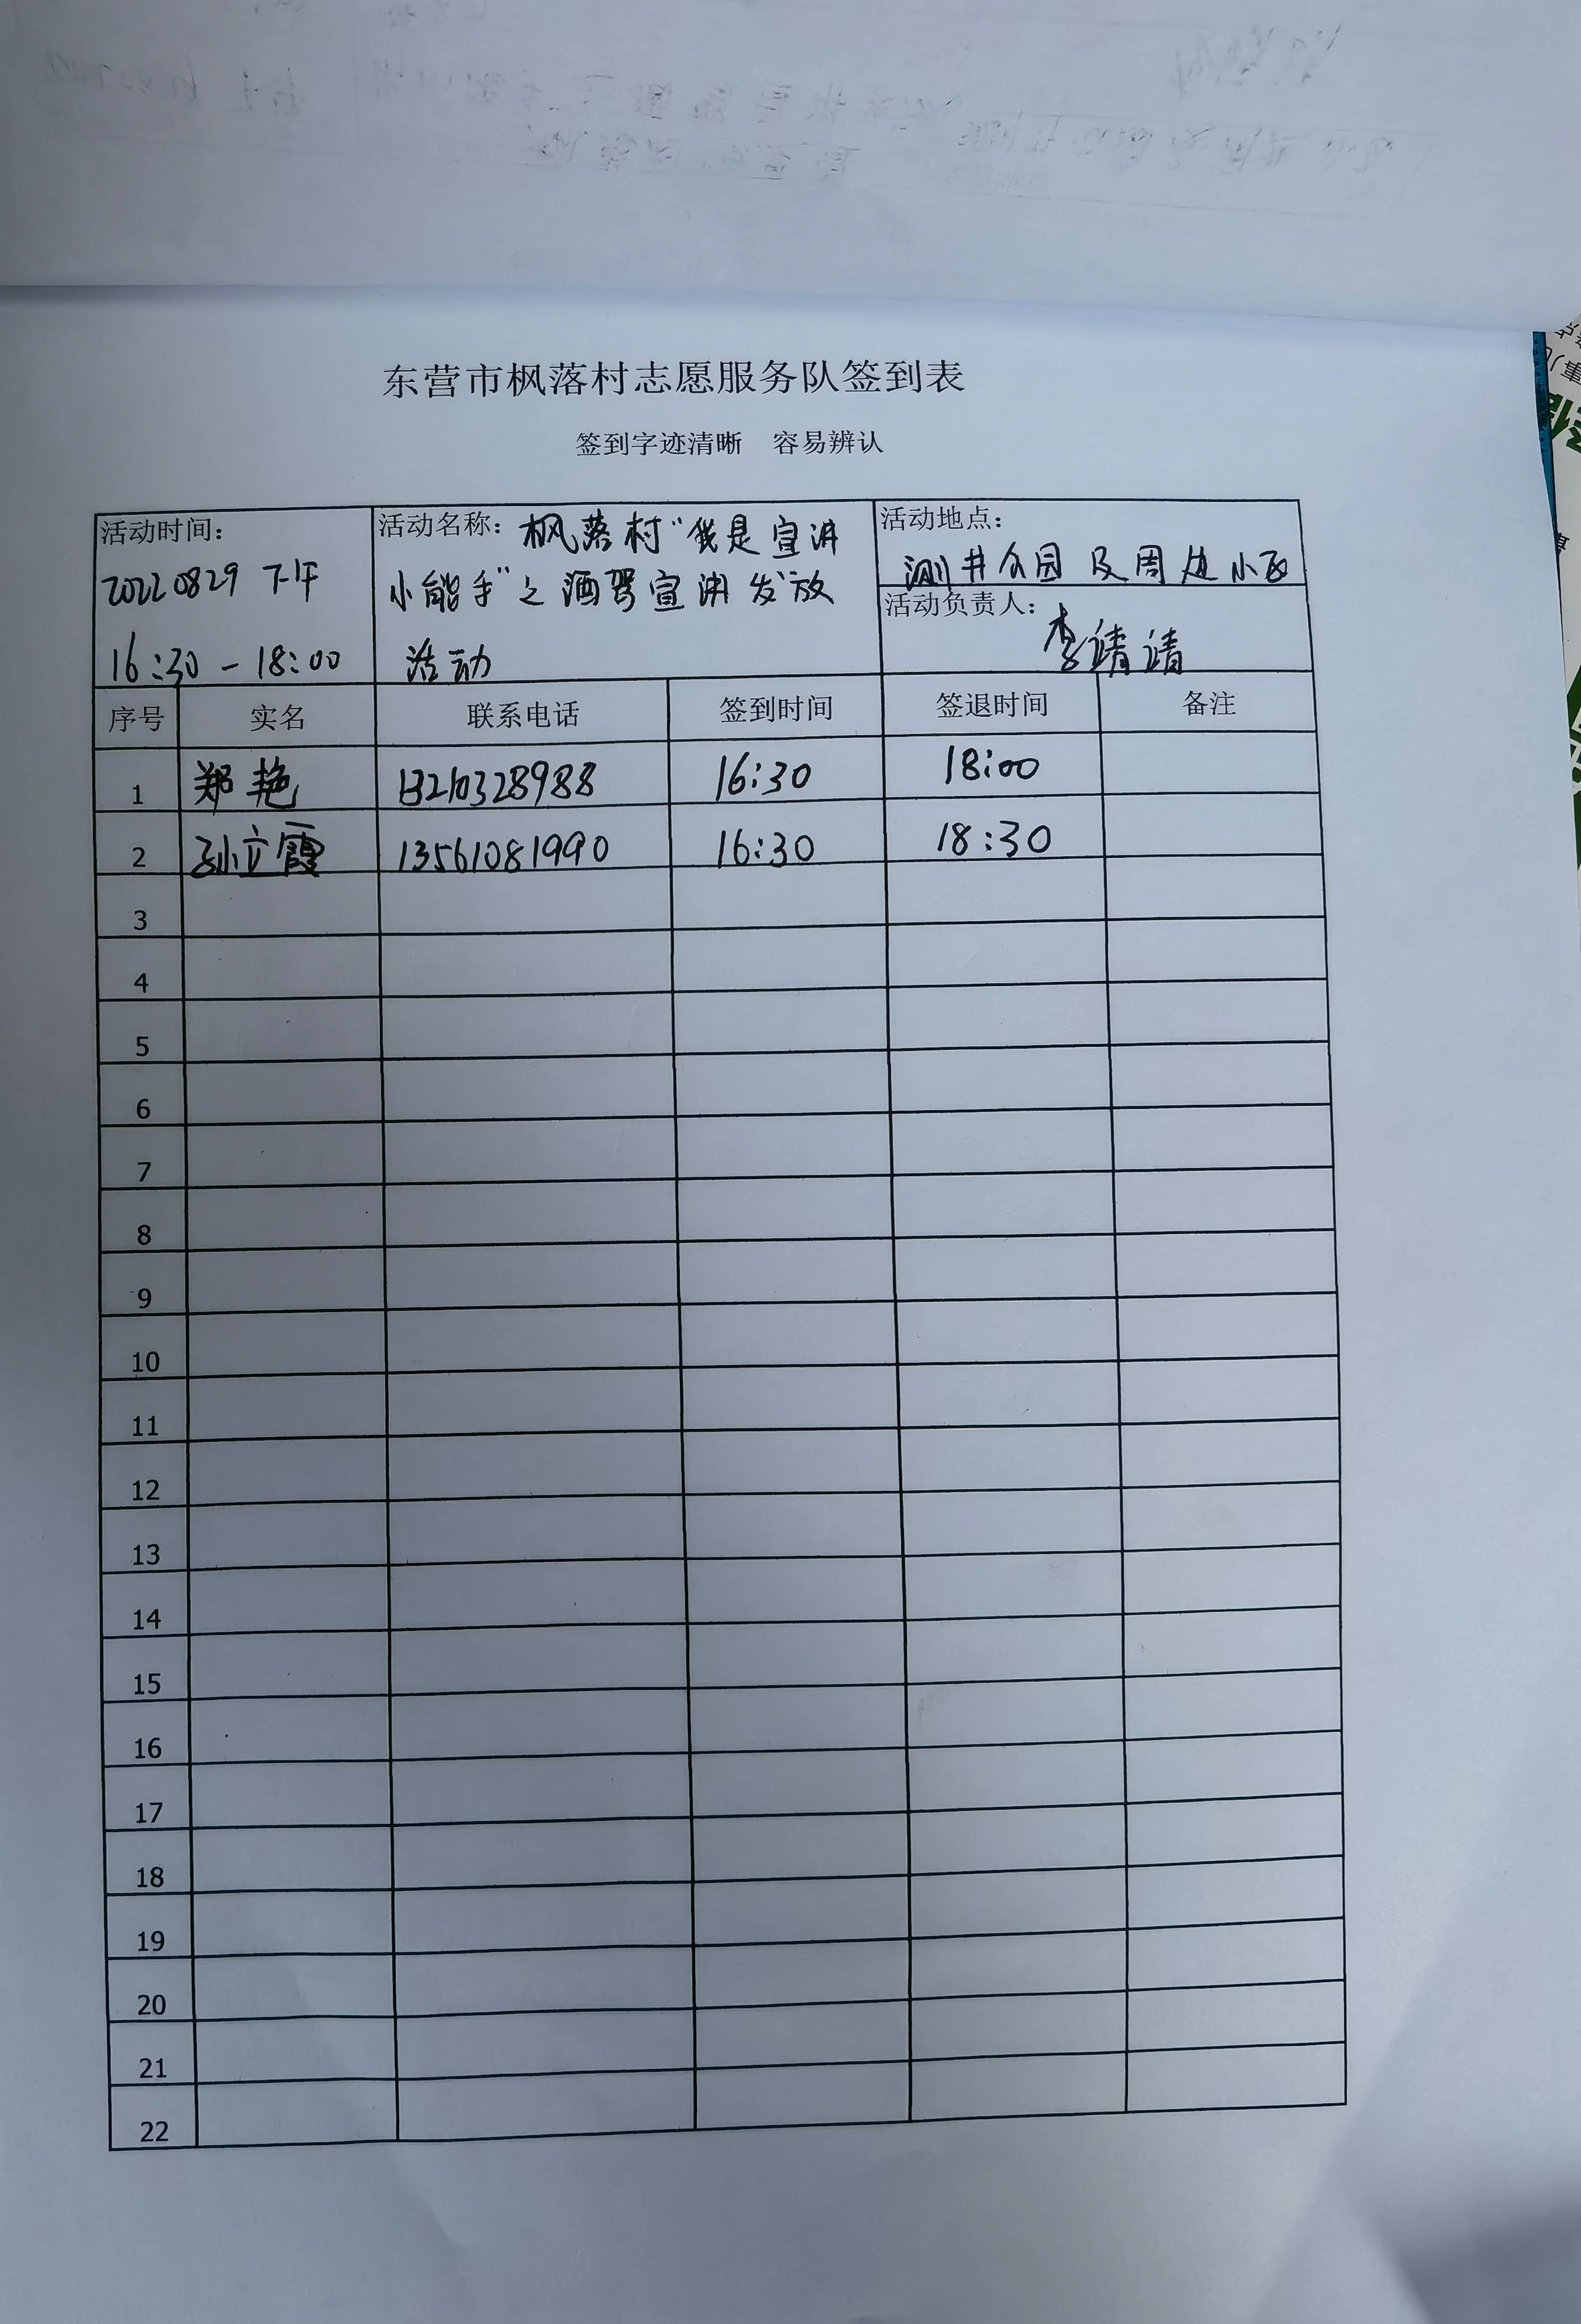 东营市枫落村志愿服务队签到表
签到字迹清晰 容易辨认
活动时间：
20220829 下午
16:30-18:00
活动名称：枫落村“我是宣讲
小能手”之酒驾宣讲发放
活动
活动地点：
测井公园及周边小区
活动负责人：
李靖靖
序号 实名 联系电话 签到时间 签退时间 备注
1 郑艳 13210328988 16:30 18:00
2 孙立霞 13561081990 16:30 18:30
3
4
5
6
7
8
9
10
11
12
13
14
15
16
17
18
19
20
21
22